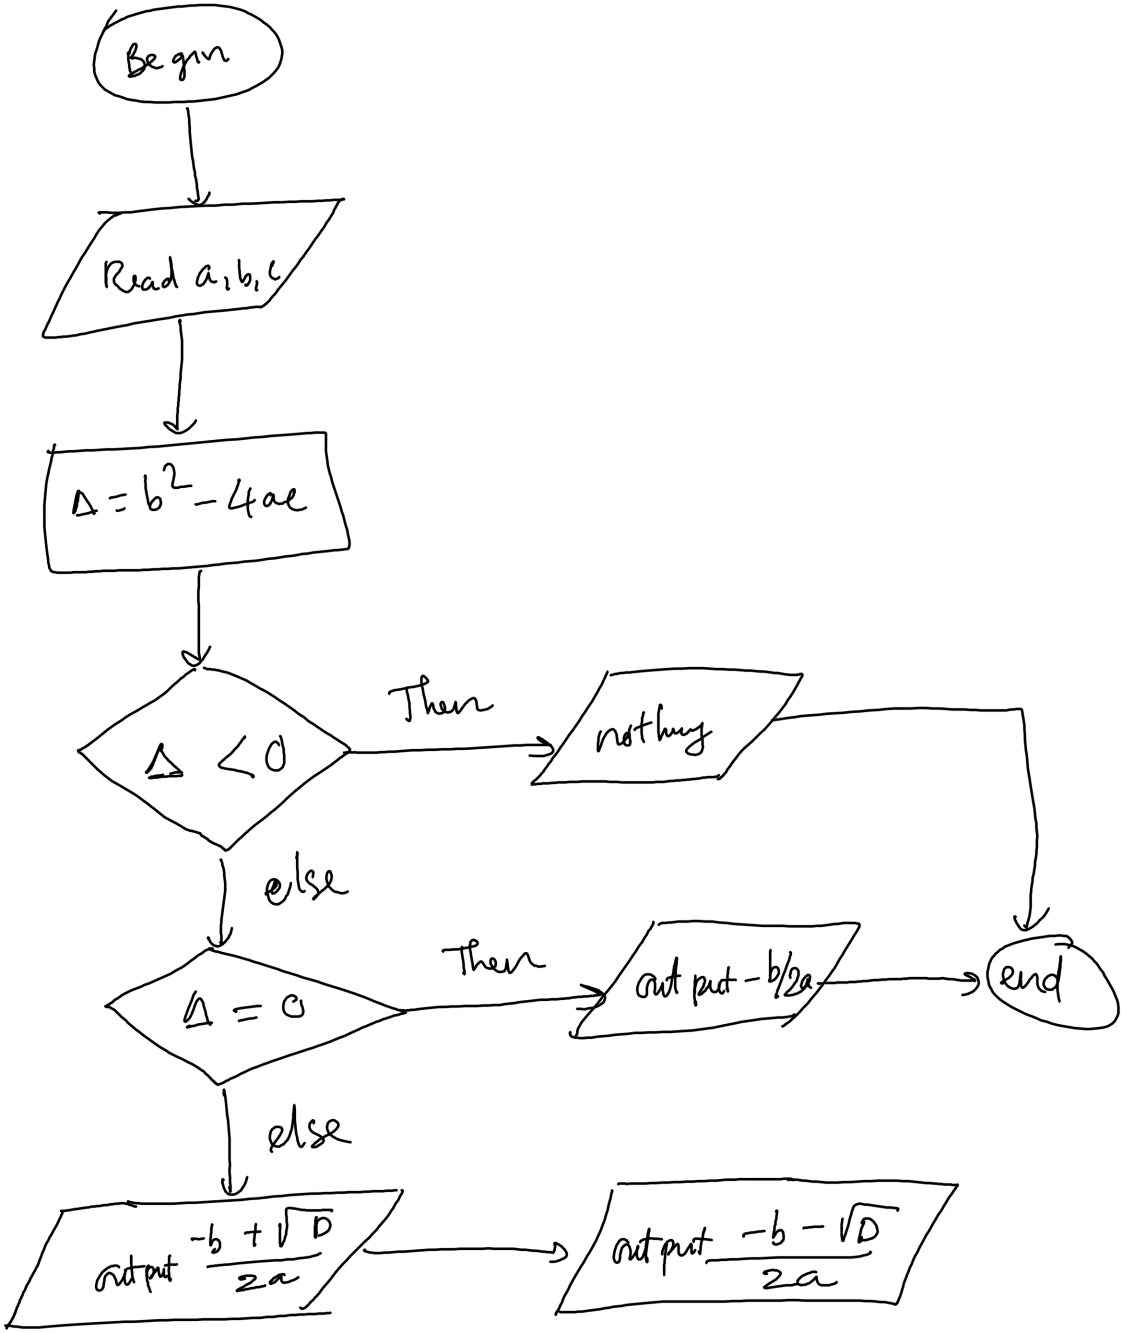 Begin
Read a, b, c
Δ = b² - 4ac
Δ < 0
Then
nothing
else
Δ = 0
Then
output - b/2a
end
else
output (-b + √D)/2a
output (-b - √D)/2a